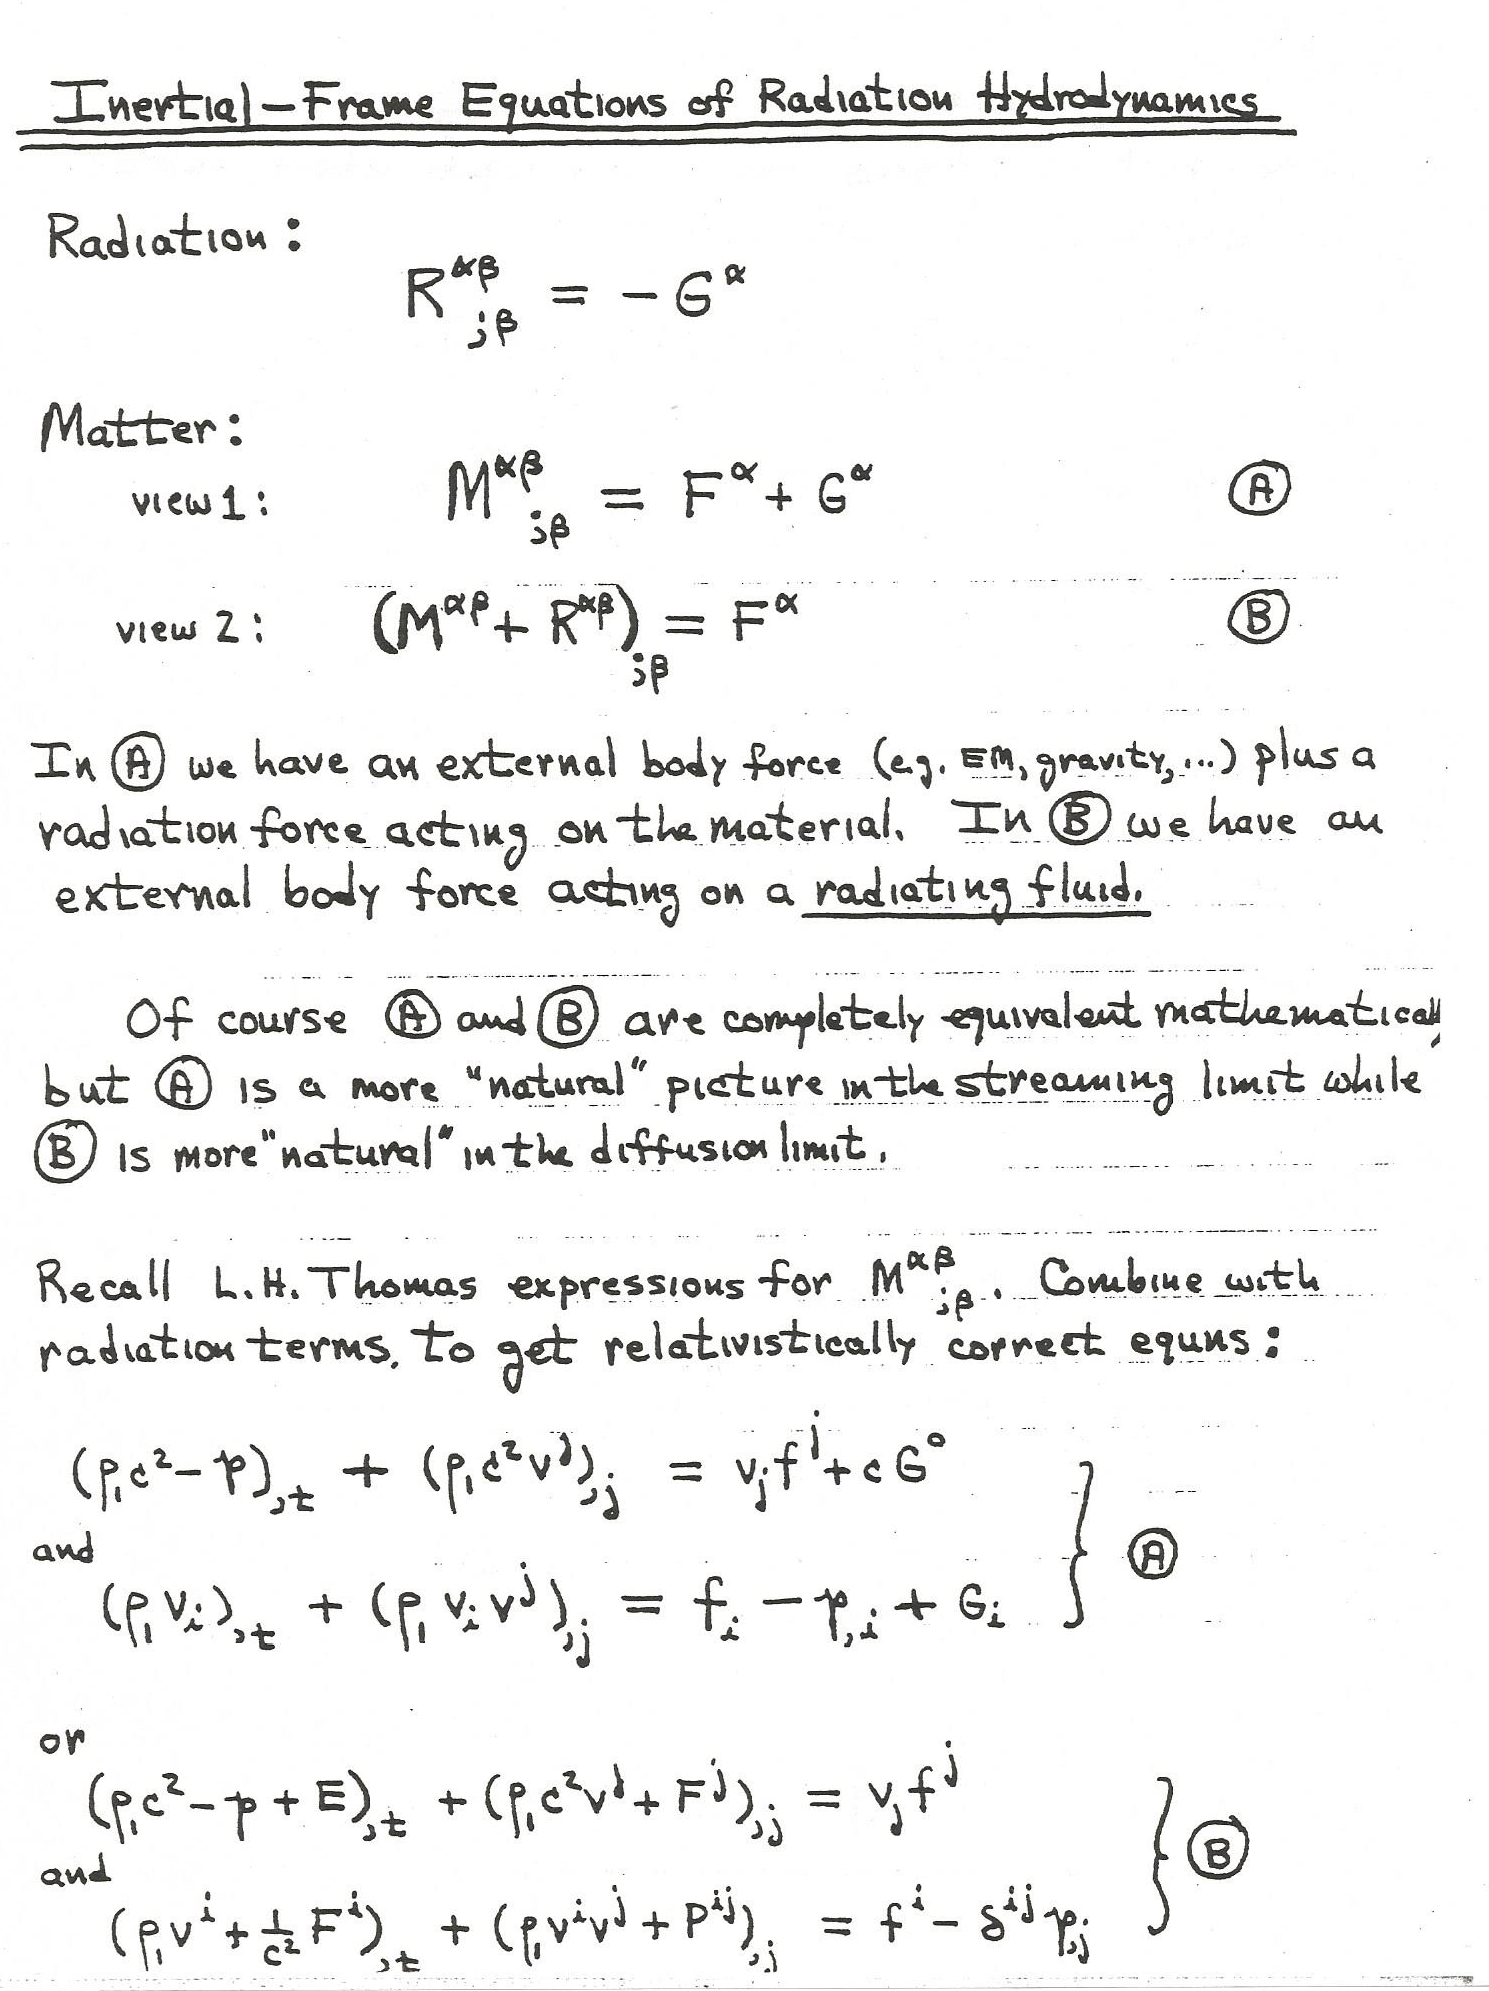 Inertial-Frame Equations of Radiation Hydrodynamics
Radiation:
R^{αβ}_{;β} = -G^α
Matter:
view 1: M^{αβ}_{;β} = F^α + G^α Ⓐ
view 2: (M^{αβ} + R^{αβ})_{;β} = F^α Ⓑ
In Ⓐ we have an external body force (e.g. EM, gravity, ...) plus a
radiation force acting on the material. In Ⓑ we have an
external body force acting on a radiating fluid.
Of course Ⓐ and Ⓑ are completely equivalent mathematically,
but Ⓐ is a more "natural" picture in the streaming limit while
Ⓑ is more "natural" in the diffusion limit.
Recall L.H. Thomas expressions for M^{αβ}_{;β}. Combine with
radiation terms, to get relativistically correct equns:
(ρ₁c² - p)_{,t} + (ρ₁c²v^j)_{,j} = v_j f^j + cG^0
and
(ρ₁v_i)_{,t} + (ρ₁v_i v^j)_{,j} = f_i - p_{,i} + G_i } Ⓐ
or
(ρ₁c² - p + E)_{,t} + (ρ₁c²v^j + F^j)_{,j} = v_j f^j
and
(ρ₁v^i + 1/c² F^i)_{,t} + (ρ₁v^i v^j + P^{ij})_{,j} = f^i - δ^{ij} p_{,j} } Ⓑ